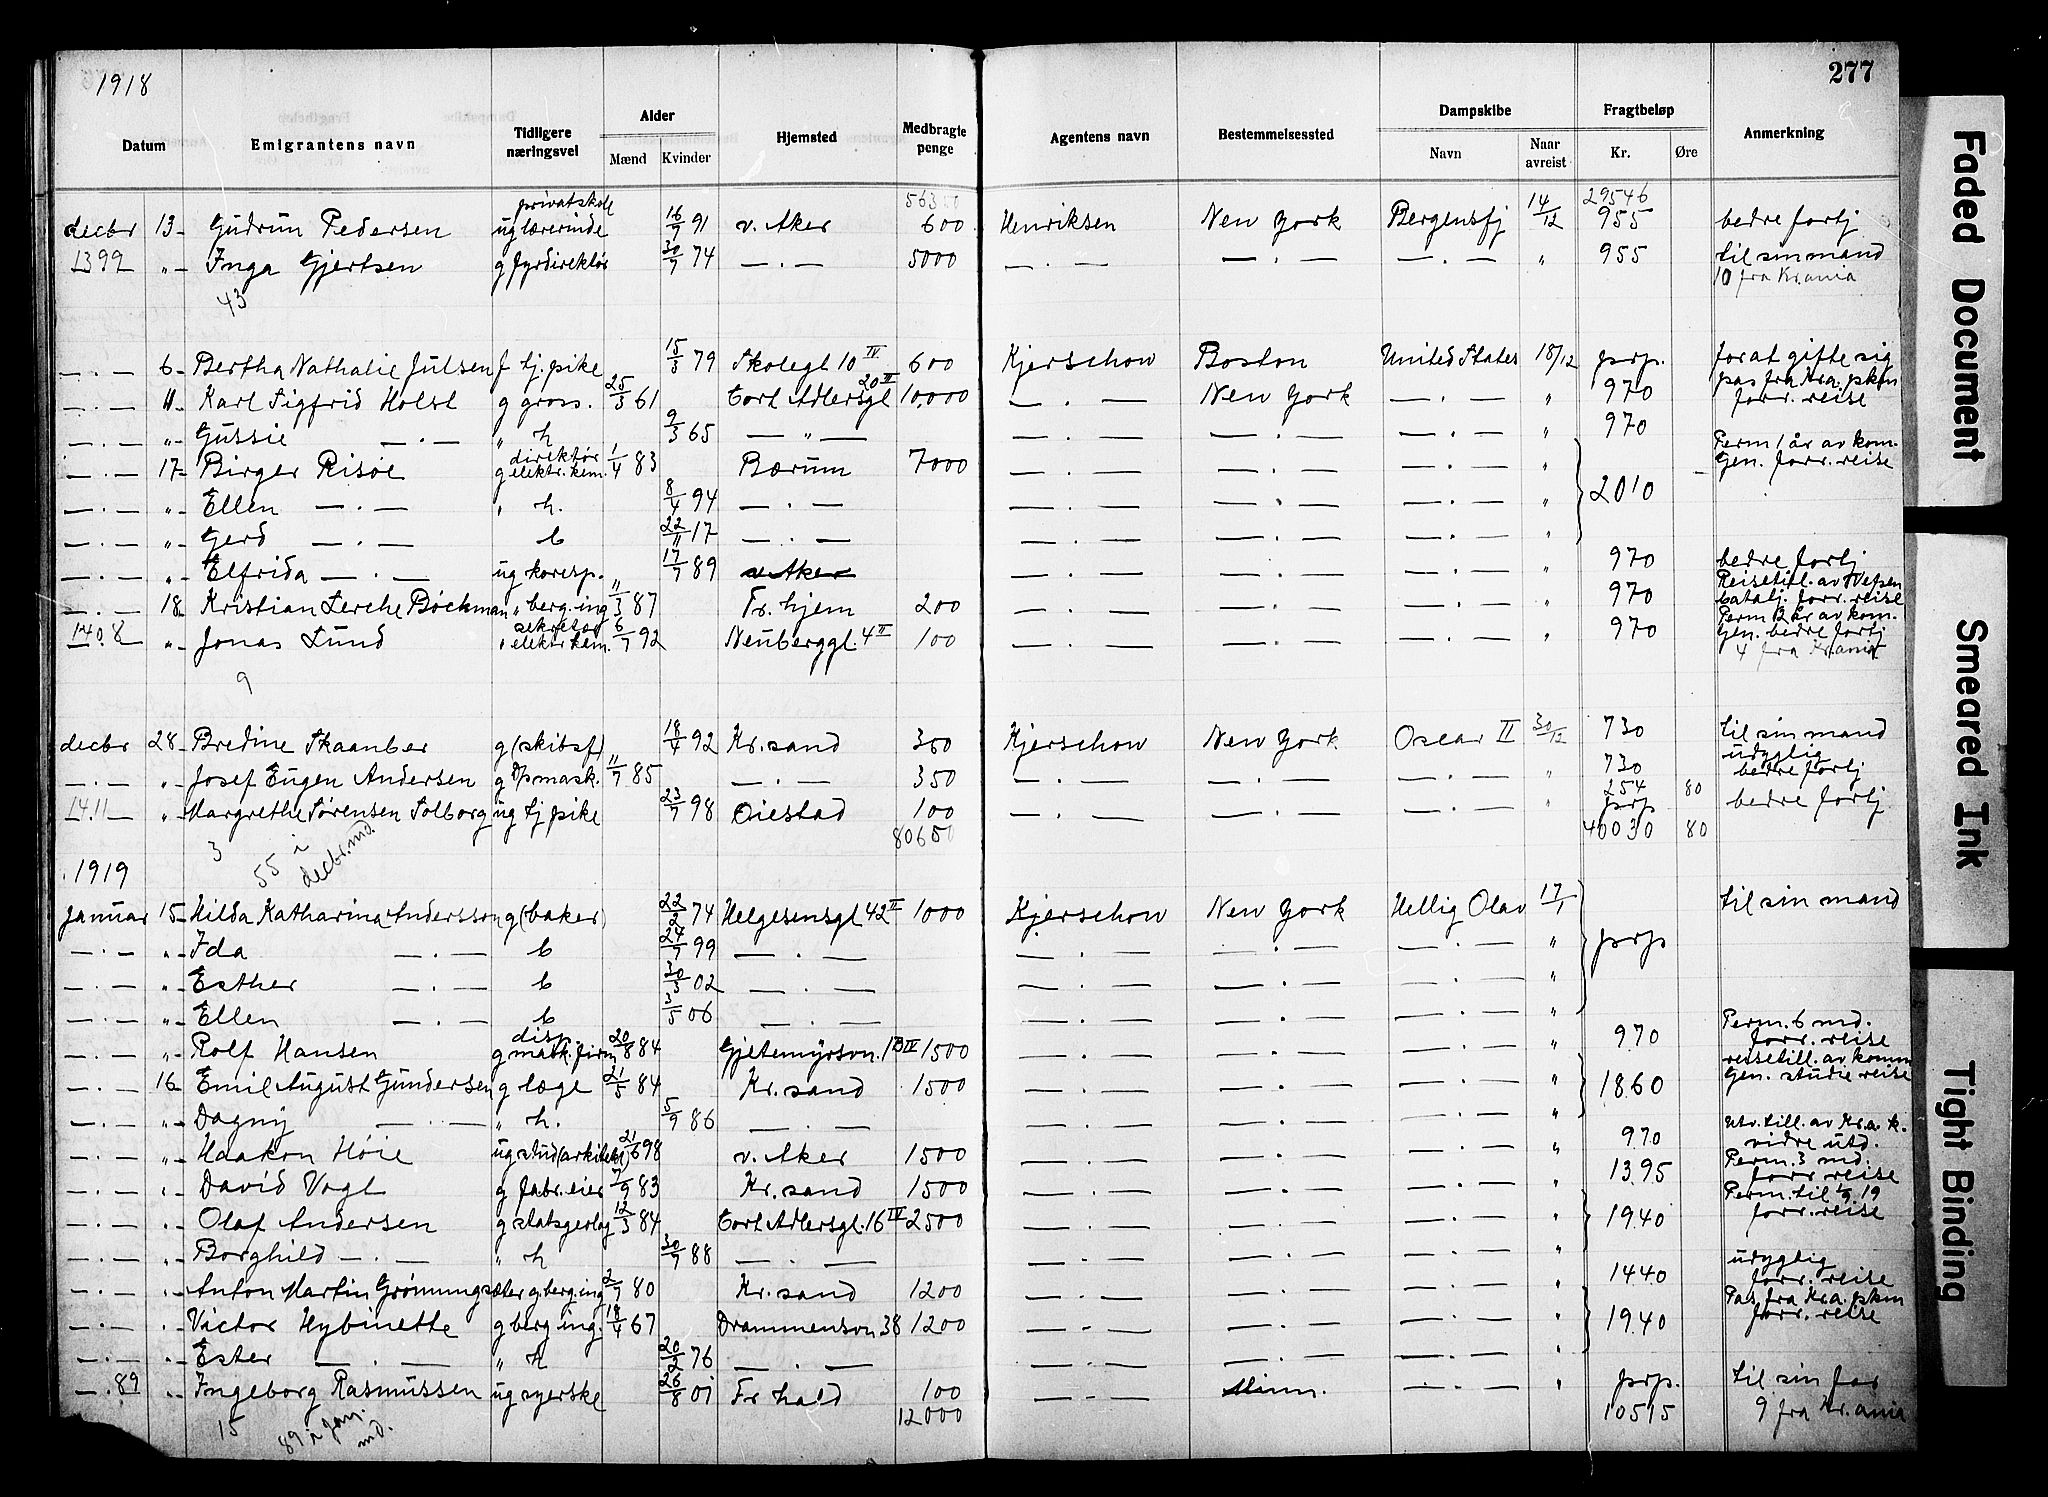 1918
277
Datum | Emigrantens navn | Tidligere næringsvei | Alder Mænd Kvinder | Hjemsted | Medbragte penge | Agentens navn | Bestemmelsessted | Dampskibe Navn Naar avreist | Fragtbeløp Kr. Øre | Anmerkning
decbr 13 - Gudrun Pedersen ug privatskole lærerinde 16/7 91 v. Aker 600 Henriksen New York Bergensfj 14/12 29546 955 bedre fortj
1399 " - Inga Gjertsen g fyrdirektør 30/7 74 — . — 5000 — . — — . — — . — " 955 til sin mand
43 10 fra Kr.ania
— . — 6 - Bertha Nathalie Julsen f tj. pike 15/3 79 Skolegt 10 IV 600 Kjerschow Boston United States 18/12 prp. for at gifte sig
— . — " - Karl Sigfrid Holst g gross. 25/3 61 Cort Adlersgt 20 II 10,000 — . — New York — . — " 970 pas fra Kra. pkm forr. reise
— . — " - Gussie — . — " h 9/3 65 — " — — . — — . — — . — " 970
— . — 17 - Birger Risöe g direktør elektr. kem. 1/4 83 Bærum 7000 — . — — . — — . — " Perm 1 år av kom. Gen. forr. reise
— . — " - Ellen — . — " h. 8/4 94 — . — — . — — . — — . — " 2010
— . — " - Gerd — . — b 22/11 17 — . — — . — — . — — . — "
— . — " - Elfrida — . — ug koresp. 17/7 89 v. Aker — . — — . — — . — " 970 bedre fortj
— . — 18 - Kristian Lerche Böckman " berg. ing 11/3 87 Tr. hjem 200 — . — — . — — . — " 970 Reisetill. av forr. reise
1408 " - Jonas Lund " sekretær elektr kem. 6/7 92 Neuberggt. 4 II 100 — . — — . — — . — " 970 Perm 2 år av kom. Gen. bedre fortj
9 4 fra Kr.ania
decbr 28 - Bredine Skaanber g (skibsf) 18/4 92 Kr. sand 350 Kjerschow New York Oscar II 30/12 730 til sin mand
— . — " - Josef Eugen Andersen g D/p mask. 11/7 85 — . — 350 — . — — . — — . — " 730 udyglig bedre fortj
1411 " - Margrethe Sørensen Solborg ug tj pike 23/7 98 Oiestad 100 — . — — . — — . — " 254 80 prp bedre fortj
3 55 i decbr. md. 80650 40030 80
1919
Januar 15 - Hilda Katharina Andersson g (baker) 22/2 74 Helgesensgt 42 II 1000 Kjerschow New York Hellig Olav 17/1 til sin mand
— . — " - Ida — . — b 24/7 99 — . — — . — — . — — . — " prp
— . — " - Esther — . — b 30/3 02 — . — — . — — . — — . — "
— . — " - Ellen — . — b 3/5 06 — . — — . — — . — — . — "
— . — " - Rolf Hansen g disp. mask. firm 20/8 84 Gjetemyrsvn. 13 IV 1500 — . — — . — — . — " 970 Perm. 6 md. forr. reise
— . — 16 - Emil August Gundersen g læge 21/5 84 Kr. sand 1500 — . — — . — — . — " 1860 reisetill. av komm Gen. studie reise
— . — " - Dagny — . — " h. 5/9 86 — . — — . — — . — — . — "
— . — " - Haakon Höie ug stud (arkitekt) 21/6 98 v. Aker 1500 — . — — . — — . — " 970 Utv. till. av Kr.a. k. vidre utd.
— . — " - David Vogt g fabr. eier 7/9 83 Kr. sand 1500 — . — — . — — . — " 1395 Perm. 3 md. forr reise
— . — " - Olaf Andersen g statsgeolog 12/3 84 Cort Adlersgt. 16 IV 2500 — . — — . — — . — " 1940 Perm. til 19 forr. reise
— . — " - Borghild — . — " h 30/7 88 — . — — . — — . — — . — "
— . — " - Anton Martin Grønningsæter g berg. ing 2/7 80 Kr. sand 1200 — . — — . — — . — " 1440 udyglig forr. reise
— . — " - Victor Hybinette g berg ing. 18/4 67 Drammensvn 38 1200 — . — — . — — . — " 1940 Pas fra Kra. pkm forr. reise
— . — " - Ester — . — " h 20/2 76 — . — — . — — . — — . — "
— . 89 " - Ingeborg Rasmussen ug syerske 26/8 01 Fr hald 100 — . — Minn. — . — " prp. til sin far
15 89 i jan. md. 12000 10515 9 fra Kr.ania
Faded Document
Smeared Ink
Tight Binding